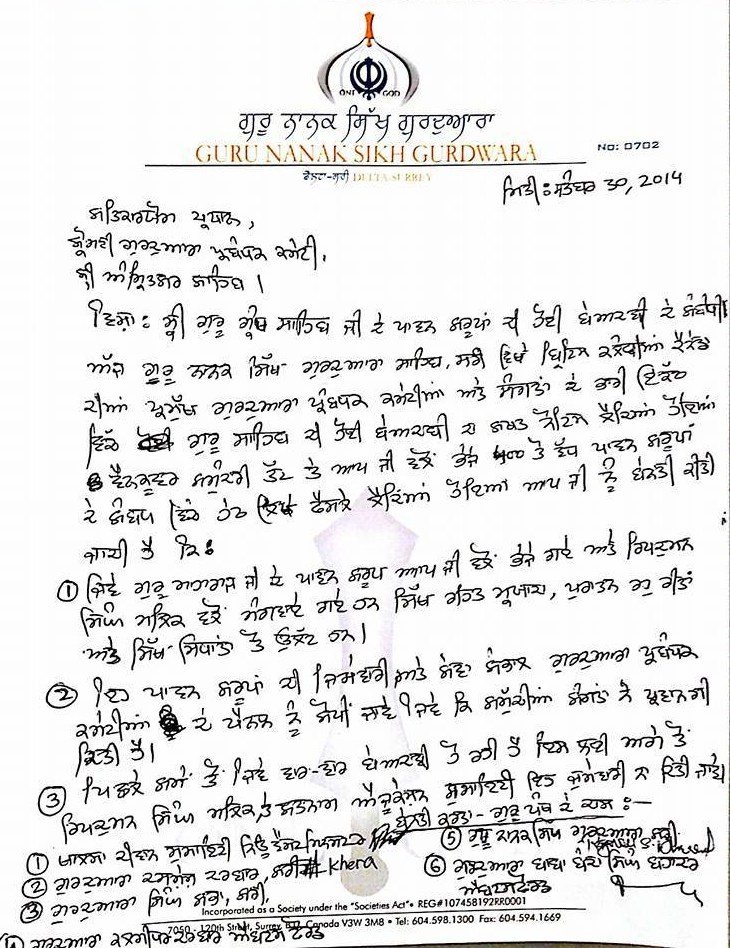 ONE GOD
ਗੁਰੂ ਨਾਨਕ ਸਿੱਖ ਗੁਰਦੁਆਰਾ
GURU NANAK SIKH GURDWARA
NO: 0702
ਡੈਲਟਾ-ਸਰੀ DELTA-SURREY
ਮਿਤੀ: ਸਤੰਬਰ 30, 2014
ਸਤਿਕਾਰਯੋਗ ਪ੍ਰਧਾਨ,
ਸ਼੍ਰੋਮਣੀ ਗੁਰਦੁਆਰਾ ਪ੍ਰਬੰਧਕ ਕਮੇਟੀ,
ਸ੍ਰੀ ਅੰਮ੍ਰਿਤਸਰ ਸਾਹਿਬ।
ਵਿਸ਼ਾ: ਸ੍ਰੀ ਗੁਰੂ ਗ੍ਰੰਥ ਸਾਹਿਬ ਜੀ ਦੇ ਪਾਵਨ ਸਰੂਪਾਂ ਦੀ ਹੋਈ ਬੇਅਦਬੀ ਦੇ ਸੰਬੰਧੀ
ਅੱਜ ਗੁਰੂ ਨਾਨਕ ਸਿੱਖ ਗੁਰਦੁਆਰਾ ਸਾਹਿਬ, ਸਰੀ ਵਿਖੇ ਬ੍ਰਿਟਿਸ਼ ਕਲੰਬੀਆ ਕੈਨੇਡਾ
ਦੀਆਂ ਪ੍ਰਮੁੱਖ ਗੁਰਦੁਆਰਾ ਪ੍ਰਬੰਧਕ ਕਮੇਟੀਆਂ ਅਤੇ ਸੰਗਤਾਂ ਦੇ ਭਾਰੀ ਇਕੱਠ
ਵਿੱਚ ਗੁਰੂ ਸਾਹਿਬ ਦੀ ਹੋਈ ਬੇਅਦਬੀ ਦਾ ਸਖਤ ਨੋਟਿਸ ਲੈਂਦਿਆਂ ਹੋਇਆਂ
ਵੈਨਕੂਵਰ ਸਮੁੰਦਰੀ ਤੱਟ ਤੇ ਆਪ ਜੀ ਵੱਲੋਂ ਭੇਜੇ 400 ਤੋਂ ਵੱਧ ਪਾਵਨ ਸਰੂਪਾਂ
ਦੇ ਸੰਬੰਧ ਵਿੱਚ ਹੇਠ ਲਿਖੇ ਫੈਸਲੇ ਲੈਂਦਿਆਂ ਹੋਇਆਂ ਆਪ ਜੀ ਨੂੰ ਬੇਨਤੀ ਕੀਤੀ
ਜਾਂਦੀ ਹੈ ਕਿ:
① ਜਿਵੇਂ ਗੁਰੂ ਮਹਾਰਾਜ ਜੀ ਦੇ ਪਾਵਨ ਸਰੂਪ ਆਪ ਜੀ ਵੱਲੋਂ ਭੇਜੇ ਗਏ ਅਤੇ ਰਿਪਦੁਮਨ
ਸਿੰਘ ਮਲਿਕ ਵੱਲੋਂ ਮੰਗਵਾਏ ਗਏ ਹਨ ਸਿੱਖ ਰਹਿਤ ਮਰਯਾਦਾ, ਪੁਰਾਤਨ ਰੀਤਾਂ
ਅਤੇ ਸਿੱਖ ਸਿਧਾਂਤਾਂ ਤੋਂ ਉਲਟ ਹਨ।
② ਇਹ ਪਾਵਨ ਸਰੂਪਾਂ ਦੀ ਜ਼ਿੰਮੇਵਾਰੀ ਅਤੇ ਸੇਵਾ ਸੰਭਾਲ ਗੁਰਦੁਆਰਾ ਪ੍ਰਬੰਧਕ
ਕਮੇਟੀਆਂ ਦੇ ਪੈਨਲ ਨੂੰ ਸੌਂਪੀ ਜਾਵੇ ਜਿਵੇਂ ਕਿ ਸਮੁੱਚੀਆਂ ਸੰਗਤਾਂ ਨੇ ਪ੍ਰਵਾਨਗੀ
ਦਿੱਤੀ ਹੈ।
③ ਪਿਛਲੇ ਸਮੇਂ ਤੋਂ ਜਿਵੇਂ ਵਾਰ-ਵਾਰ ਬੇਅਦਬੀ ਹੋ ਰਹੀ ਹੈ ਇਸ ਲਈ ਅਗੇ ਤੋਂ
ਰਿਪਦੁਮਨ ਸਿੰਘ ਮਲਿਕ, ਤੇ ਸਤਨਾਮ ਐਜੂਕੇਸ਼ਨ ਸੁਸਾਇਟੀ ਇਹ ਜ਼ੁੰਮੇਵਾਰੀ ਨਾ ਦਿੱਤੀ ਜਾਵੇ।
ਬੇਨਤੀ ਕਰਤਾ - ਗੁਰੂ ਪੰਥ ਦੇ ਦਾਸ:-
① ਖਾਲਸਾ ਦੀਵਾਨ ਸੁਸਾਇਟੀ ਨਿਊ ਵੈਸਟਮਿਨਸਟਰ
② ਗੁਰਦੁਆਰਾ ਦਸਮੇਸ਼ ਦਰਬਾਰ, ਸਰੀ Khera
③ ਗੁਰਦੁਆਰਾ ਸਿੰਘ ਸਭਾ, ਸਰੀ,
④ ਗੁਰਦੁਆਰਾ ਕਲਗੀਧਰ ਦਰਬਾਰ ਐਬਟਸਫੋਰਡ
⑤ ਗੁਰੂ ਨਾਨਕ ਸਿੱਖ ਗੁਰਦੁਆਰਾ ਸਰੀ
⑥ ਗੁਰਦੁਆਰਾ ਬਾਬਾ ਬੰਦਾ ਸਿੰਘ ਬਹਾਦਰ
ਐਬਟਸਫੋਰਡ
Incorporated as a Society under the "Societies Act" • REG#107458192RR0001
7050 - 120th Street, Surrey, B.C. Canada V3W 3M8 • Tel: 604.598.1300 Fax: 604.594.1669